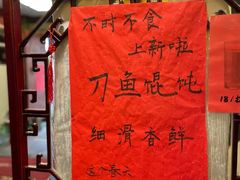 不时不食
上新啦
刀鱼馄饨
细滑香鲜
这个春天
18/